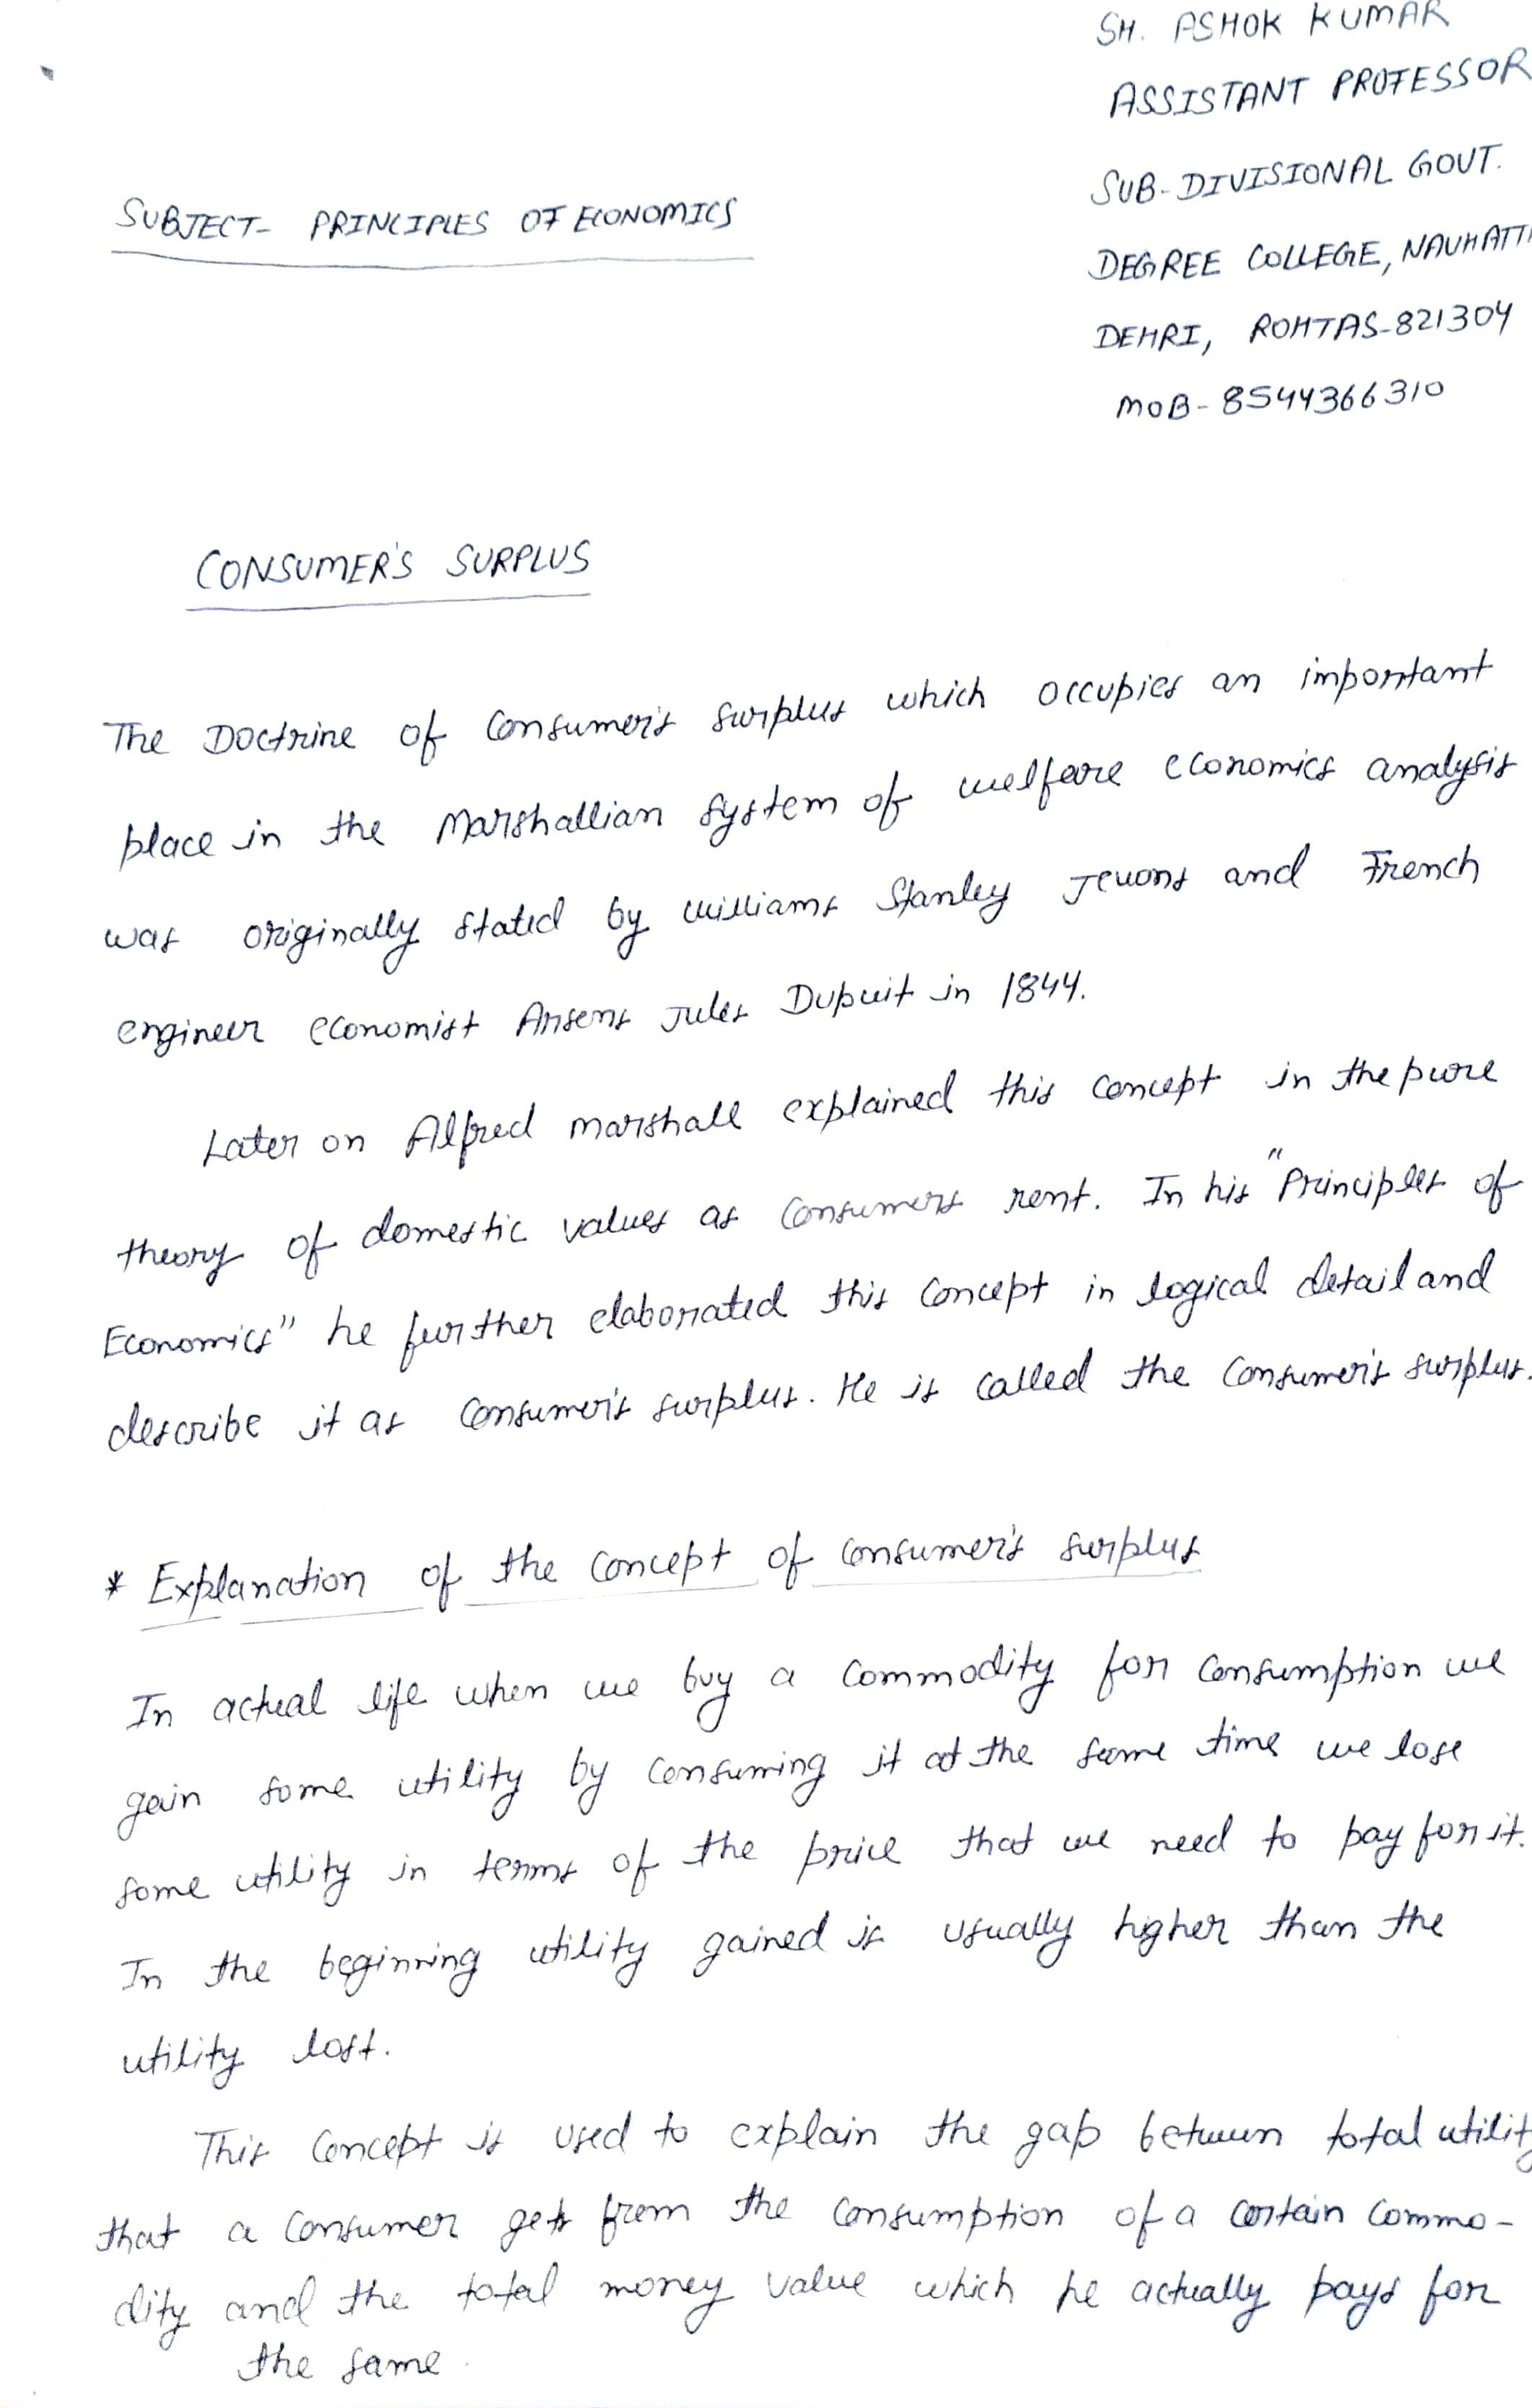 SH. ASHOK KUMAR
ASSISTANT PROFESSOR
SUB-DIVISIONAL GOVT.
SUBJECT- PRINCIPLES OF ECONOMICS
DEGREE COLLEGE, NAUHATT
DEHRI, ROHTAS-821304
MOB- 8544366310
CONSUMER'S SURPLUS
The Doctrine of Consumer's surplus which occupies an important
place in the Marshallian system of welfare economics analysis
was originally stated by Williams Stanley Jevons and French
engineer economist Arsens Jules Dupuit in 1844.
Later on Alfred marshall explained this concept in the pure
theory of domestic values as Consumers rent. In his "Principles of
Economics" he further elaborated this concept in logical detail and
describe it as Consumer's surplus. He is called the Consumer's surplus.
* Explanation of the concept of consumer's surplus
In actual life when we buy a commodity for consumption we
gain some utility by consuming it at the same time we lose
some utility in terms of the price that we need to pay for it.
In the beginning utility gained is usually higher than the
utility lost.
This concept is used to explain the gap between total utilit
that a consumer gets from the consumption of a certain commo-
dity and the total money value which he actually pays for
the same.